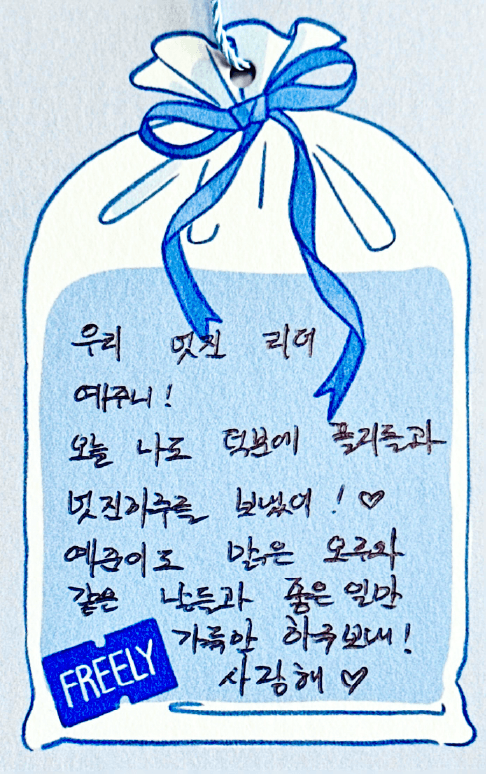 우리 멋진 리더
예주니!
오늘 나도 덕분에 플리들과
멋진하루를 보냈어! ♡
예준이도 맑은 오후와
같은 날들과 좋은 일만
가득한 하루보내!
사랑해 ♡
FREELY